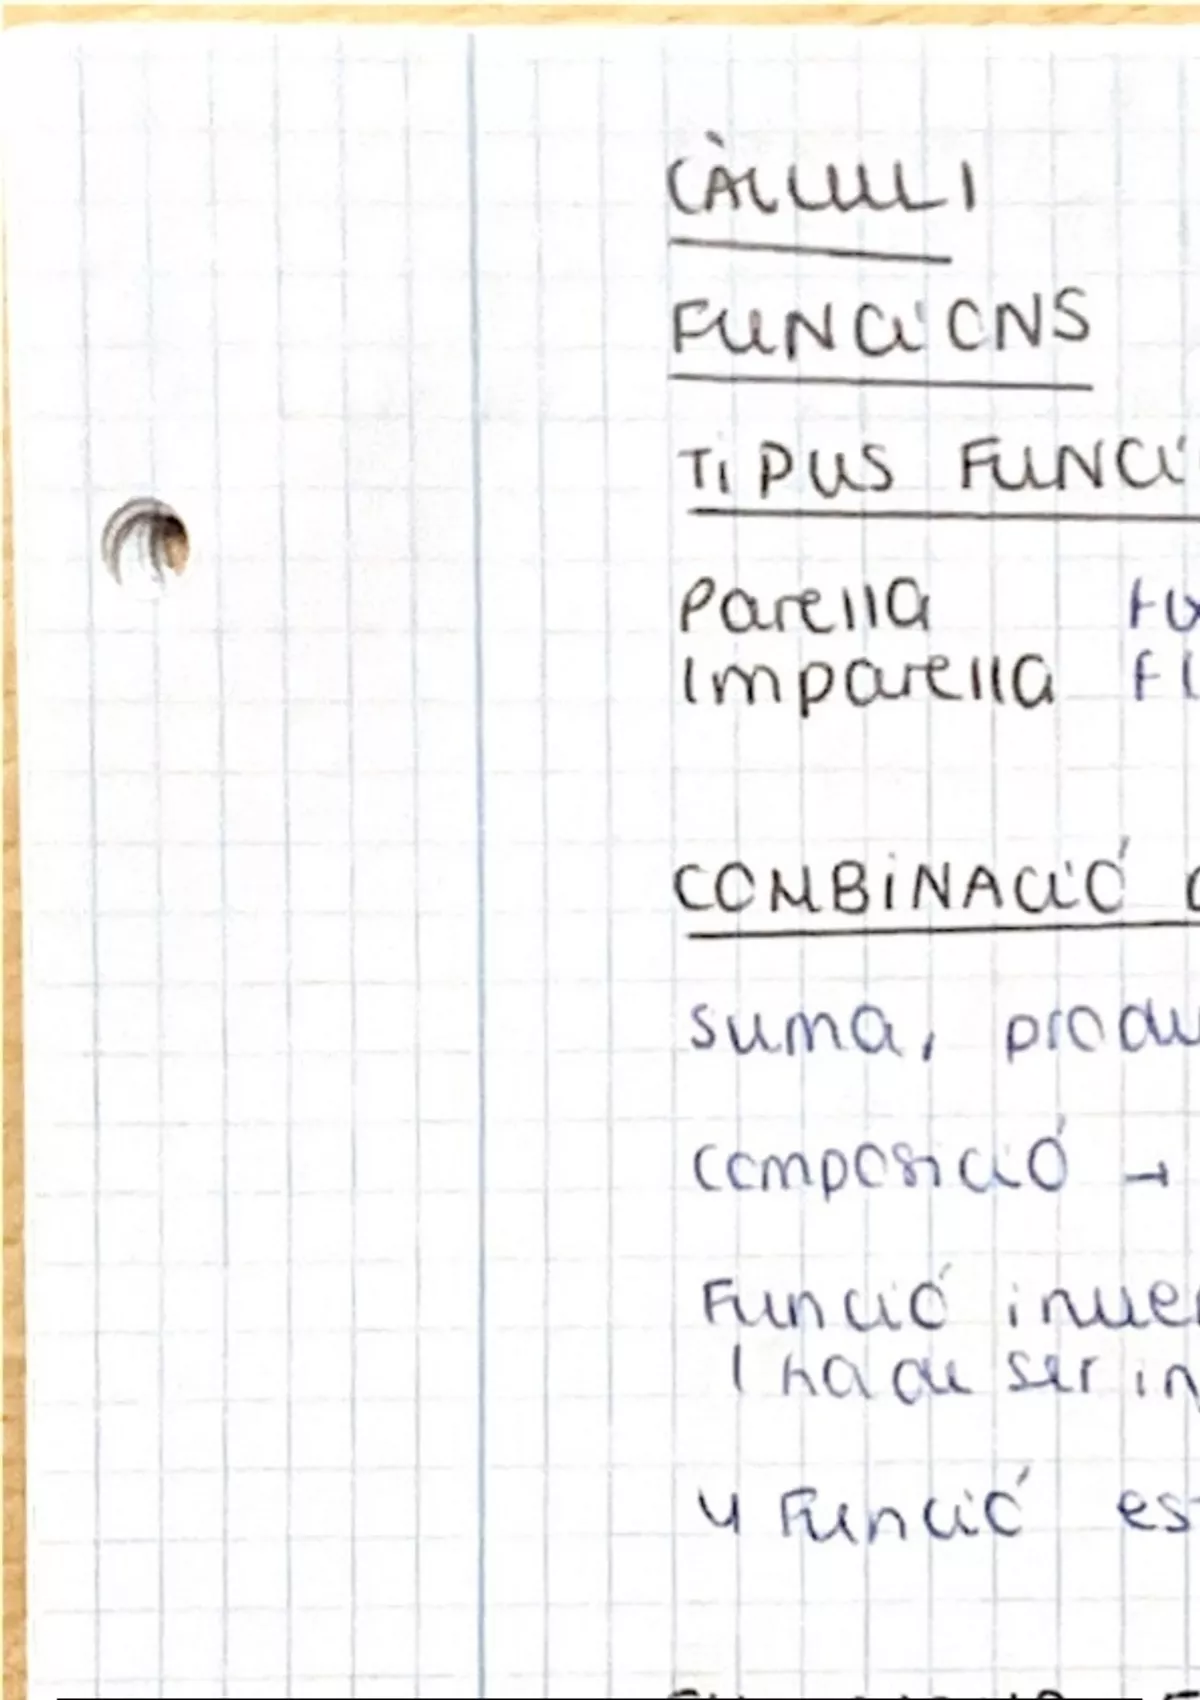 CÀLCUL I
FUNCIONS
TIPUS FUNCI
Parella
Imparella
COMBINACIÓ
suma, produ
composició →
Funció inver
I ha de ser in
4 Funció es